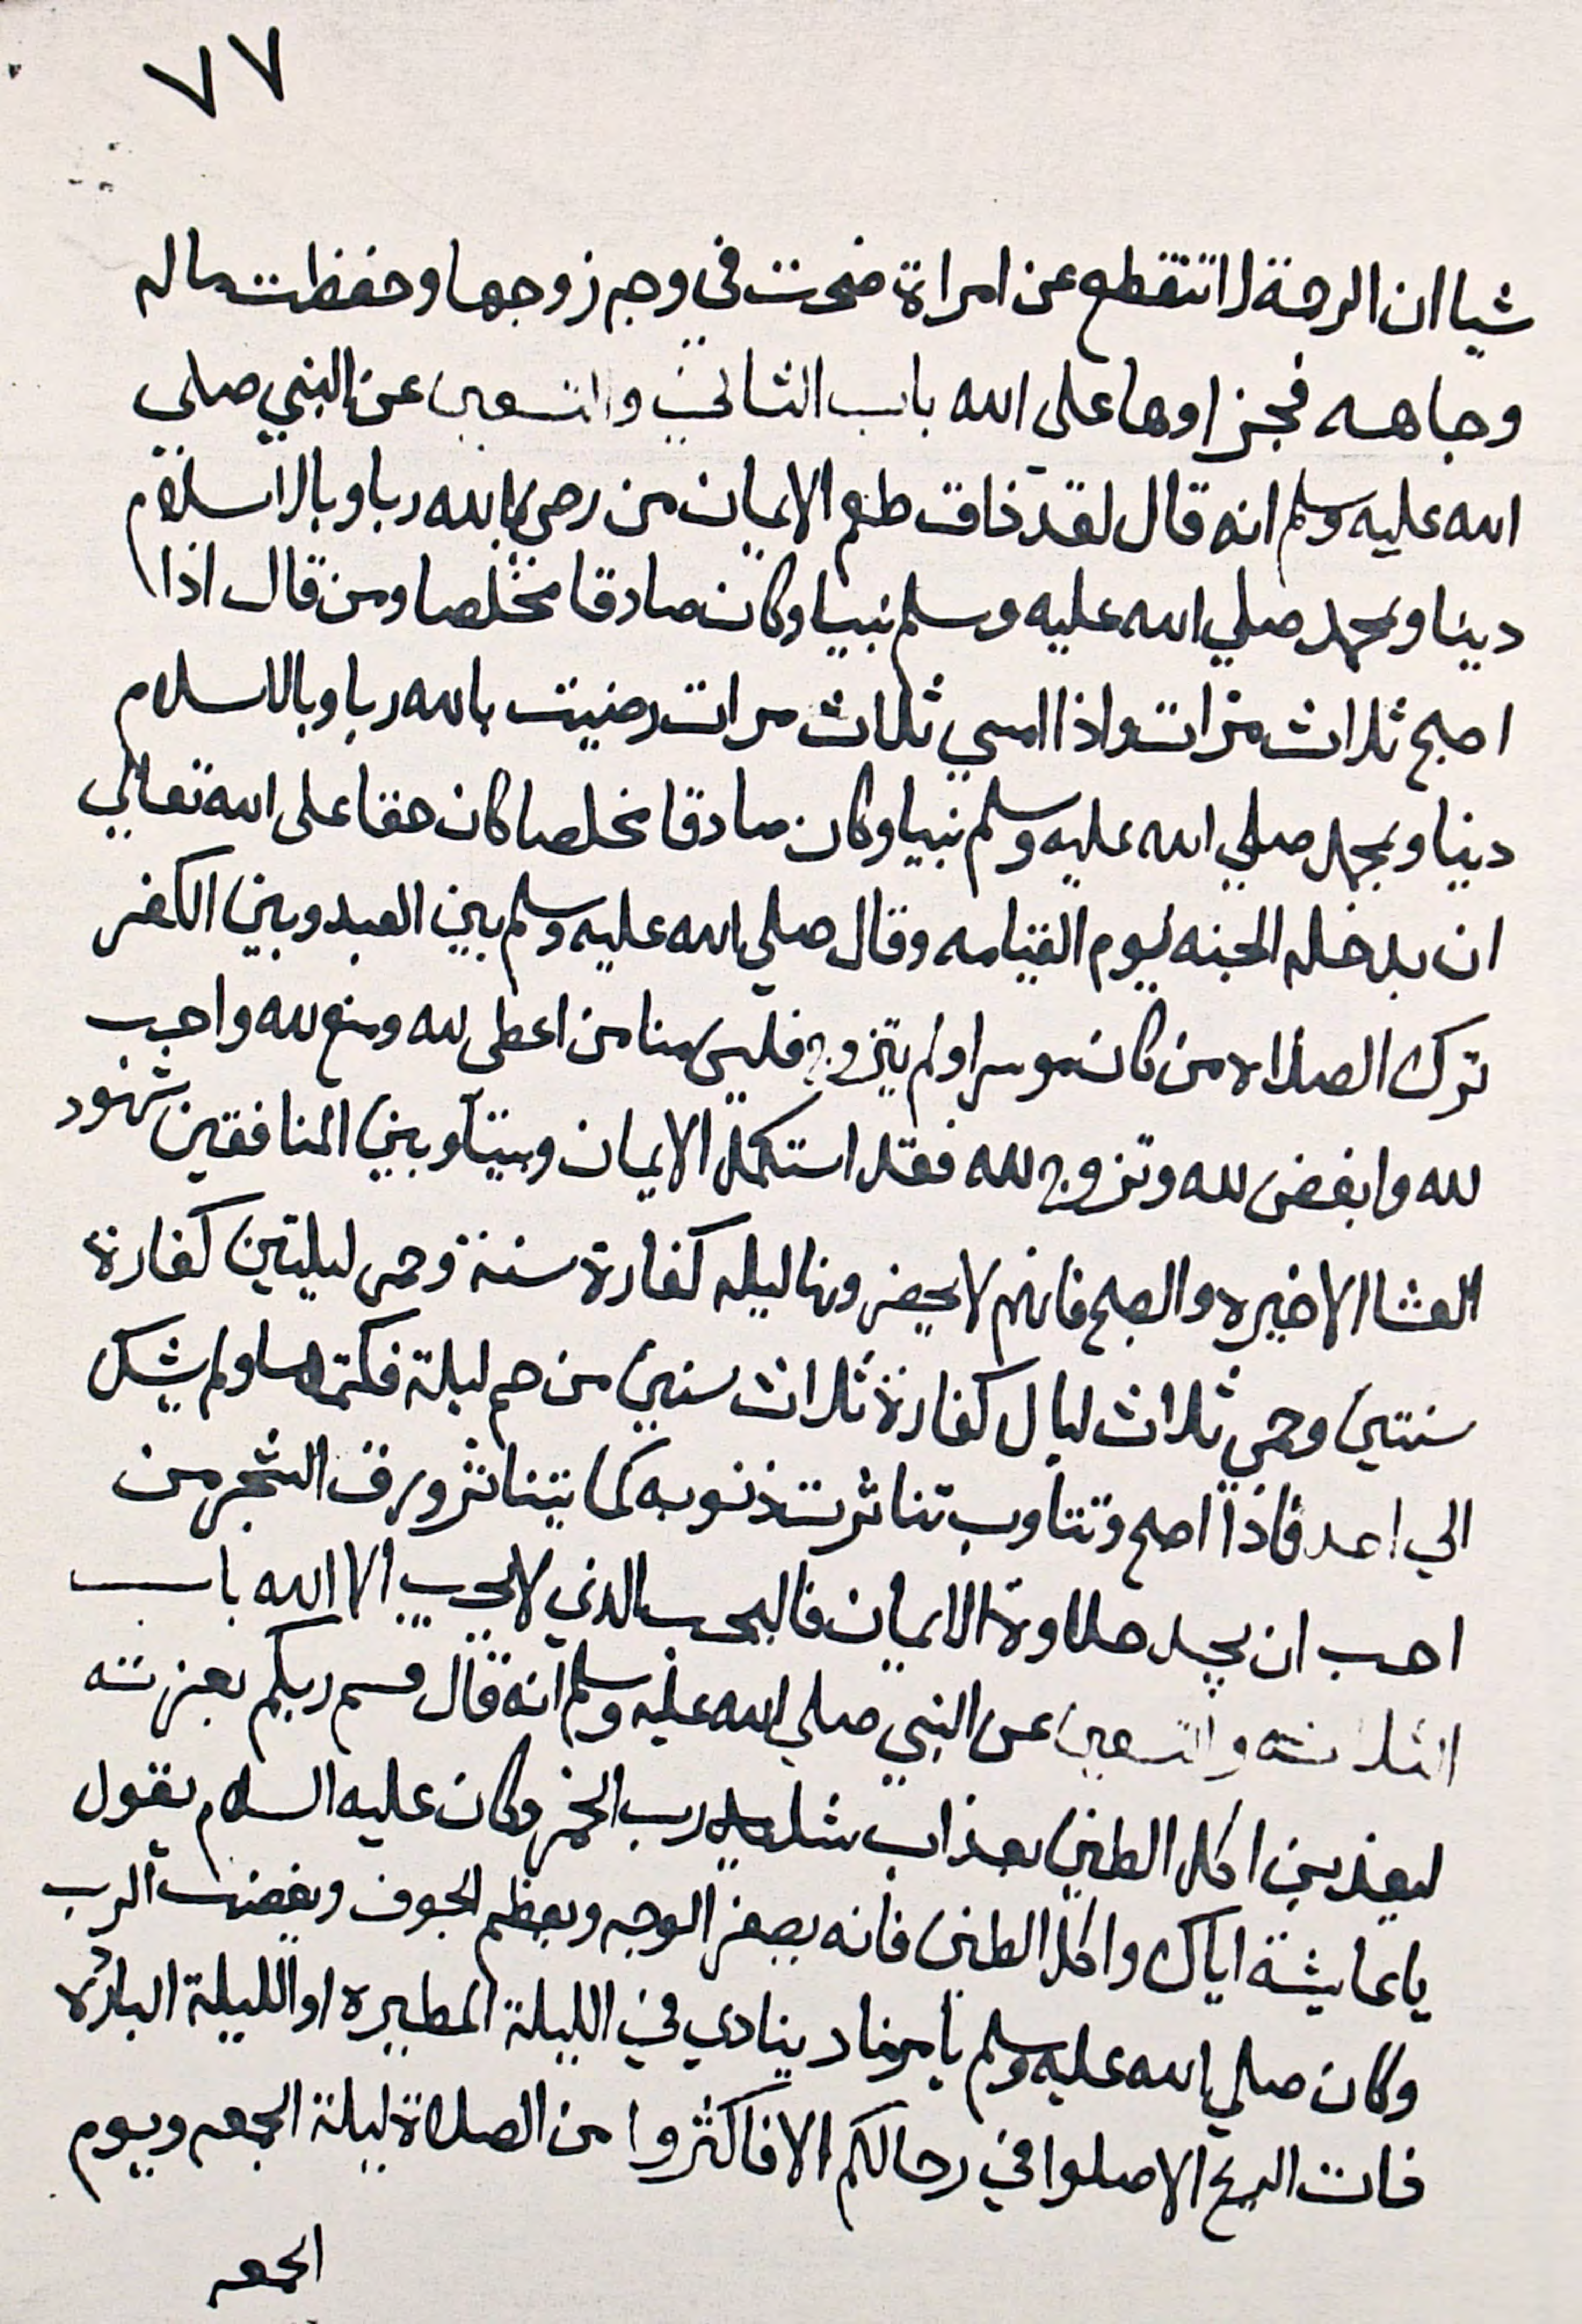 ٧٧
شيا ان الرحمة لا تنقطع عن امراة ضحت في وجه زوجها وحفظت ماله
وجاهه فجزاوها على الله باب الثاني والتسعين عن النبي صلي
الله عليه وسلم انه قال لقد ذاق طعم الايمان من رضي بالله ربا وبالاسلام
دينا وبمحمد صلي الله عليه وسلم نبيا وكان صادقا مخلصا ومن قال اذا
اصبح ثلاث مرات واذا امسي ثلاث مرات رضيت بالله ربا وبالاسلام
دينا وبمحمد صلي الله عليه وسلم نبيا وكان صادقا مخلصا كان حقا على الله تعالي
ان يدخله الجنه يوم القيامه وقال صلي الله عليه وسلم بين العبد وبين الكفر
ترك الصلاه من كان موسرا ولم يتزوج فليس منا من اعطى لله ومنع لله واحب
لله وابغض لله وتزوج لله فقد استكمل الايمان وبيننا وبين المنافقين شهود
العشا الاخيره والصبح فانهم لا يحضرونها ليله كفارة سنة وحمى ليلتين كفارة
سنتين وحمي ثلاث ليال كفارة ثلاث سنين من حم ليلة فكتمها ولم يشكي
الي احد فاذا اصبح وتتاوب تناثرت ذنوبه كما يتناثر ورق الشجر من
احب ان يجد حلاوة الايمان فاليحب الذي لا يحب الا الله باب
الثلاثه والتسعين عن النبي صلي الله عليه وسلم انه قال قسم ربكم بعزته
ليعذبن اكل الطين بعذاب شارب الخمر وكان عليه السلام يقول
يا عايشة اياك واكل الطين فانه يصفر الوجه ويعظم الجوف ويغضب الرب
وكان صلي الله عليه وسلم يامر مناد ينادي في الليلة المطيره او الليلة البارده
فات الريح الا صلوا في رحالكم الا فاكثروا من الصلاة ليلة الجمعه ويوم
الجمعه